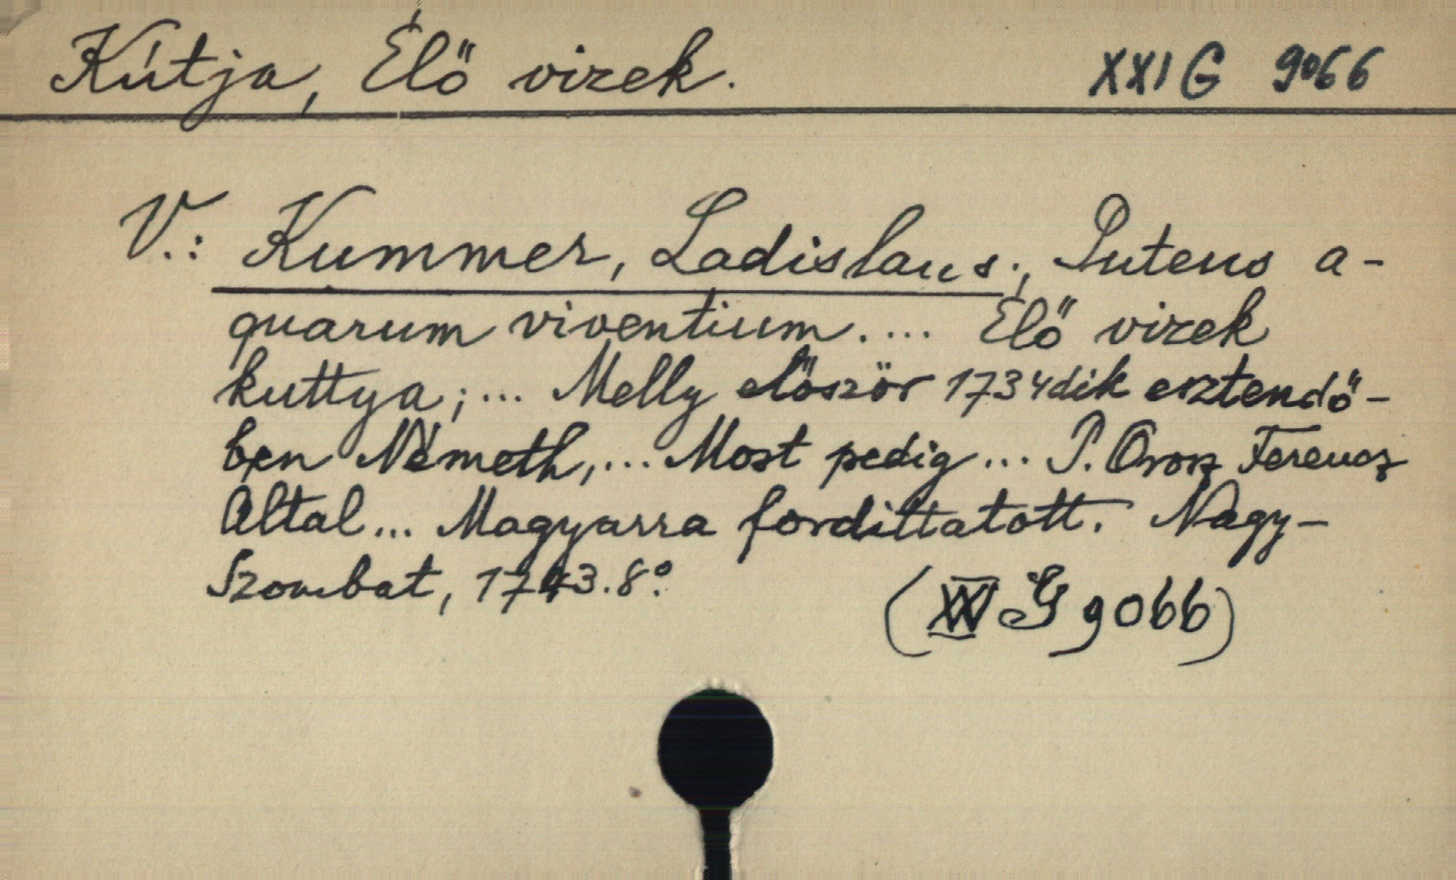 Kútja, Élő vizek. XXI G 9066
V.: Kummer, Ladislaus., Puteus a-
quarum viventium.... Élő vizek
kuttya;... Melly először 1734dik esztendő-
ben Németh,... Most pedig... P. Orosz Ferencz
Által... Magyarra fordíttatott. Nagy-
Szombat, 1743. 8°.
(XXI G 9066)